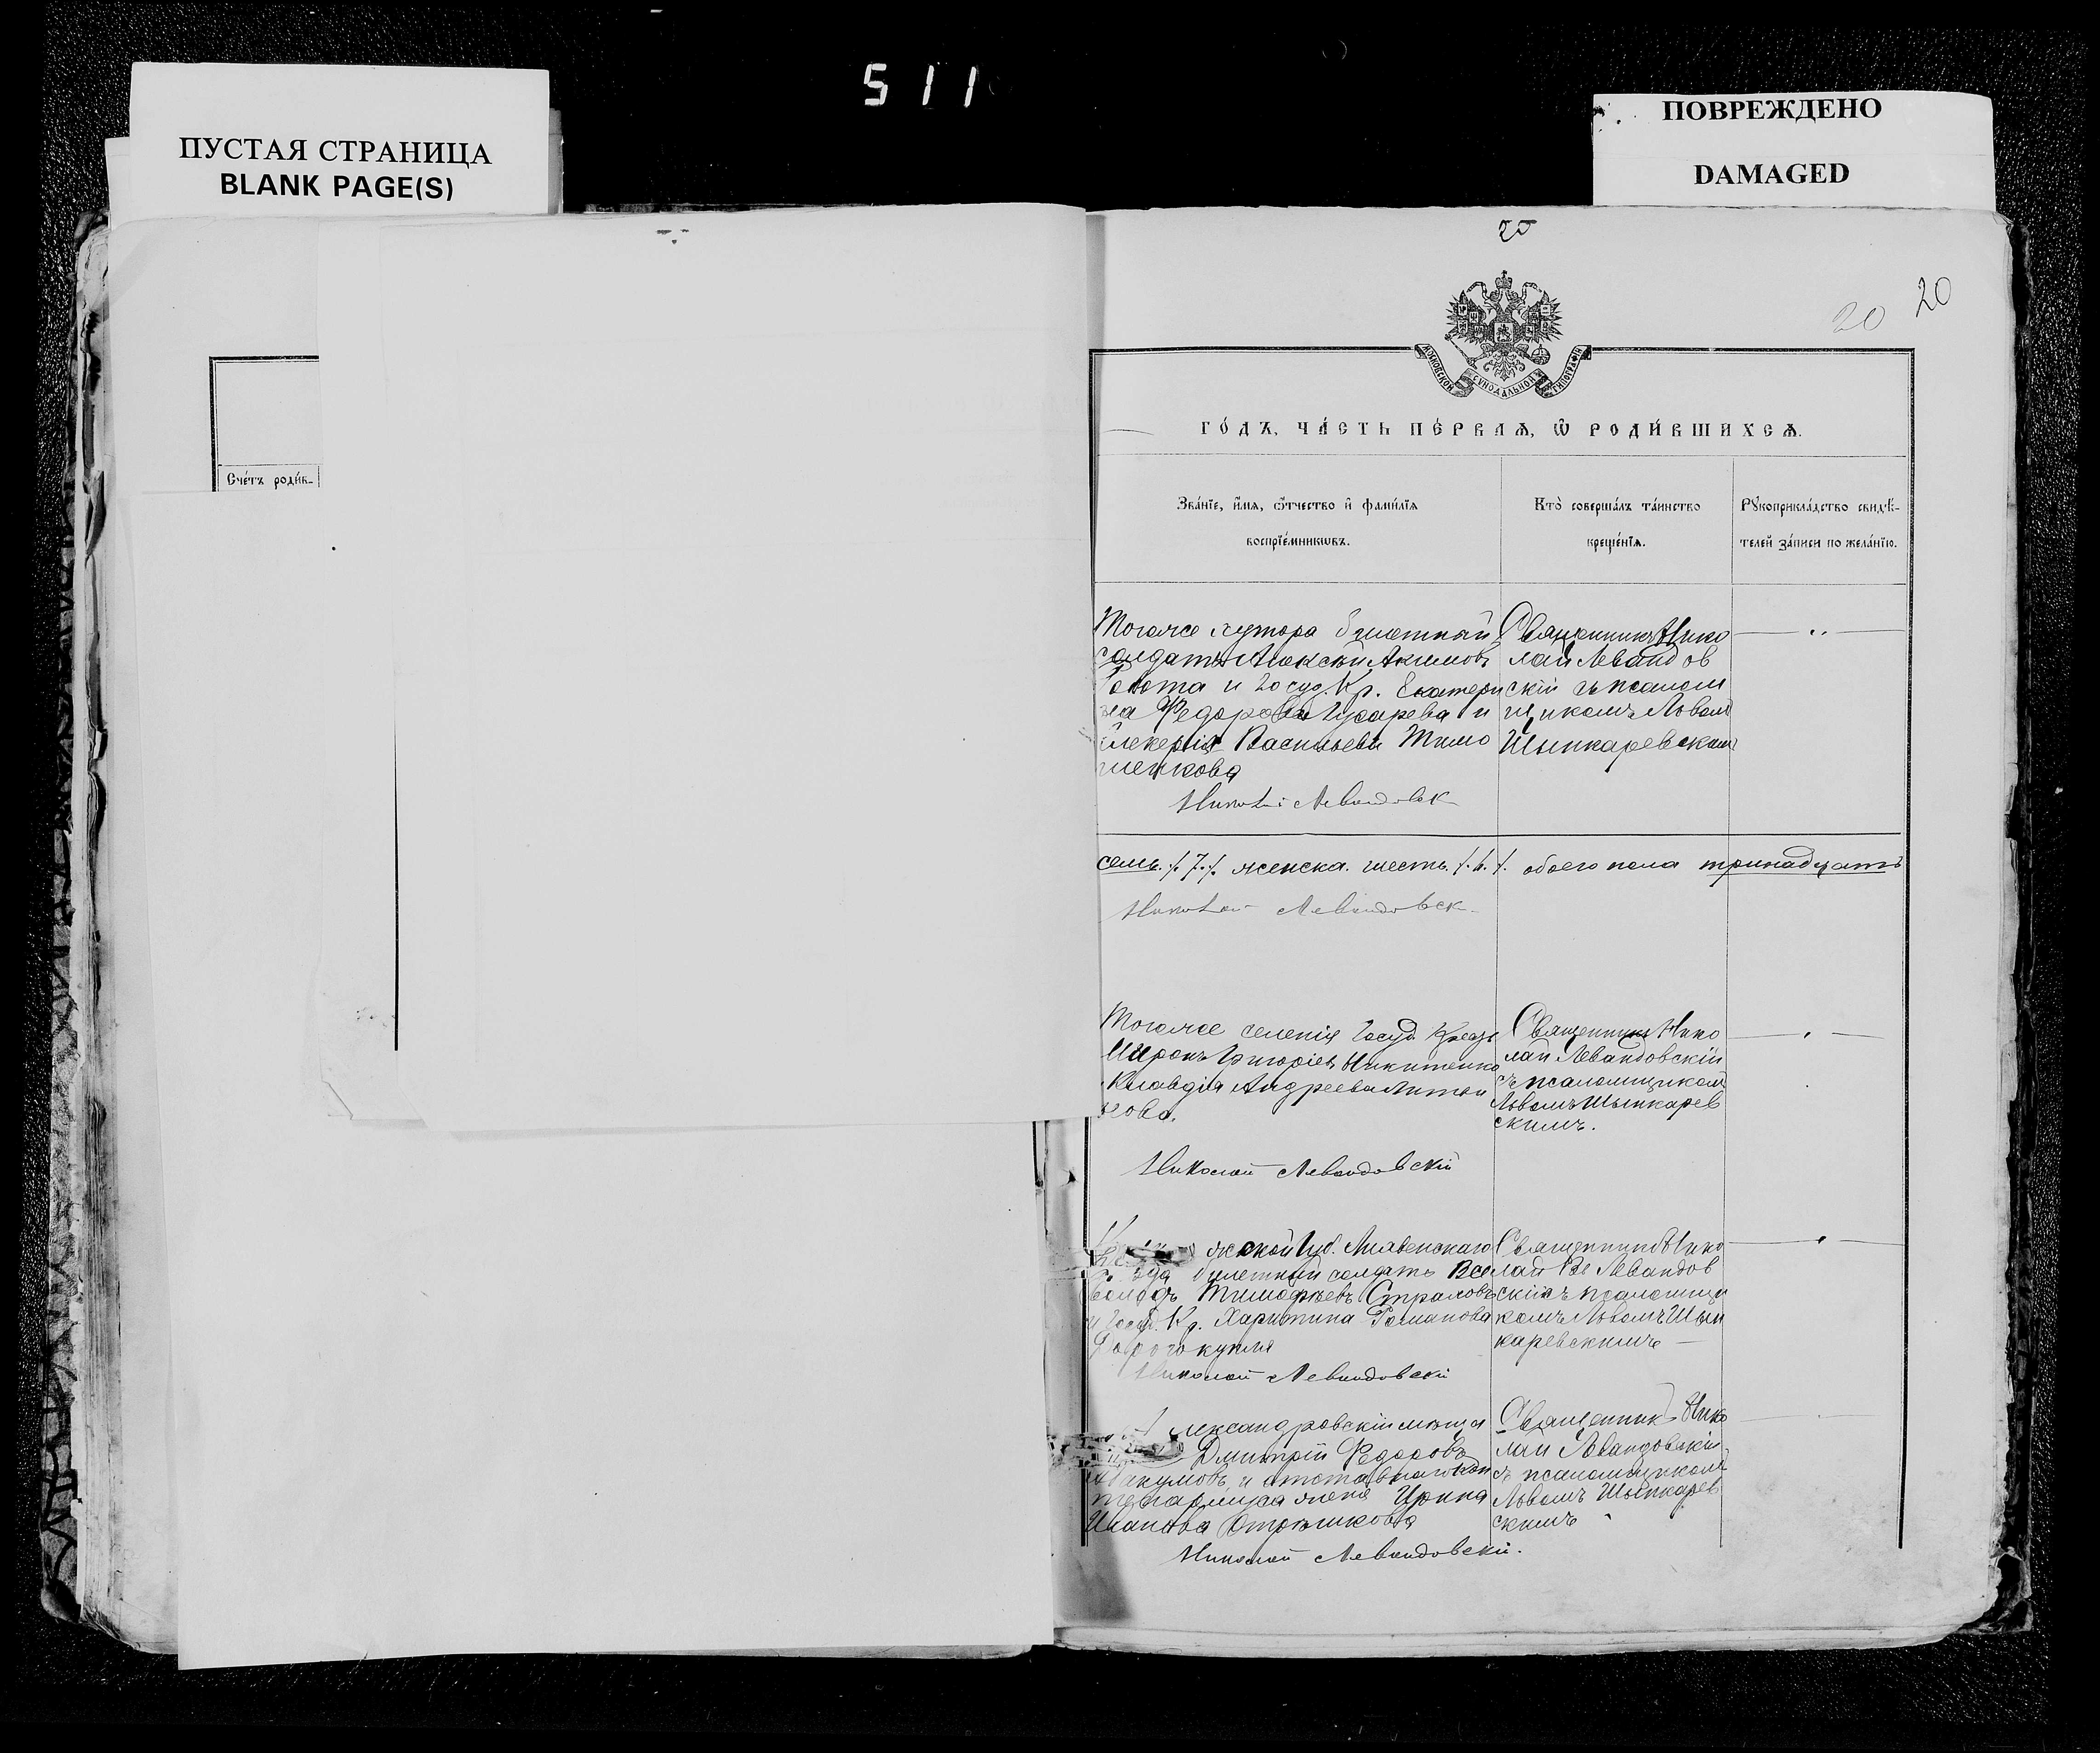 511
ПУСТАЯ СТРАНИЦА
BLANK PAGE(S)
ПОВРЕЖДЕНО
DAMAGED
20
20
20
МОСКОВСКОЙ СѴНОДАЛЬНОЙ ТИПОГРАФІИ
Сче́тъ роди́в-
ГО́ДЪ, ЧА́СТЬ ПЕ́РВАѦ, Ѽ РОДИ́ВШИХСѦ.
Зва́нїе, и҆́мѧ, ѻ҆́тчество и҆ фами́лїѧ
воспрїе́мникѡвъ.
Кто̀ соверша́лъ та́инство
креще́нїѧ.
Рꙋкоприкла́дство свидѣ́-
телей за́писи по жела́нїю.
Тогоже хутора билетный
солдатъ Алексѣй Акимовъ
и Госуд. Кр. Екатери
на Федорова Гусарева и
Васильева Тимо
шенкова
Николай Левандовск
Священникъ Нико
лай Левандов
скій съ псалом
щикомъ Львом
Шынкаревским
семь ./.7./. женска. шесть ./.6./. обоего пола тринадцать
Николай Левандовск
Тогоже селенія Госуд. Крест
Миронъ Григоріевъ Никитенко
Клавдія Андреева Литви
нова.
Николай Левандовскій
Священникъ Нико
лай Левандовскій
съ псаломщиком
Львомъ Шынкарев
скимъ.
ской Губ. Лиvенскаго
билетный солдатъ Все
володъ Тимофеевъ
и Госуд. Кр. Харитина Романова
Николай Левандовскій
Священникъ Нико
лай Левандов
скій съ псаломщи
комъ Львомъ Шын
каревскимъ
Александровскій мѣща
Дмитрій Федоровъ
жена Ирина
Иванова
Николай Левандовскій.
Священникъ Нико
лай Левандовскій
съ псаломщиком
Львомъ Шынкарев
скимъ